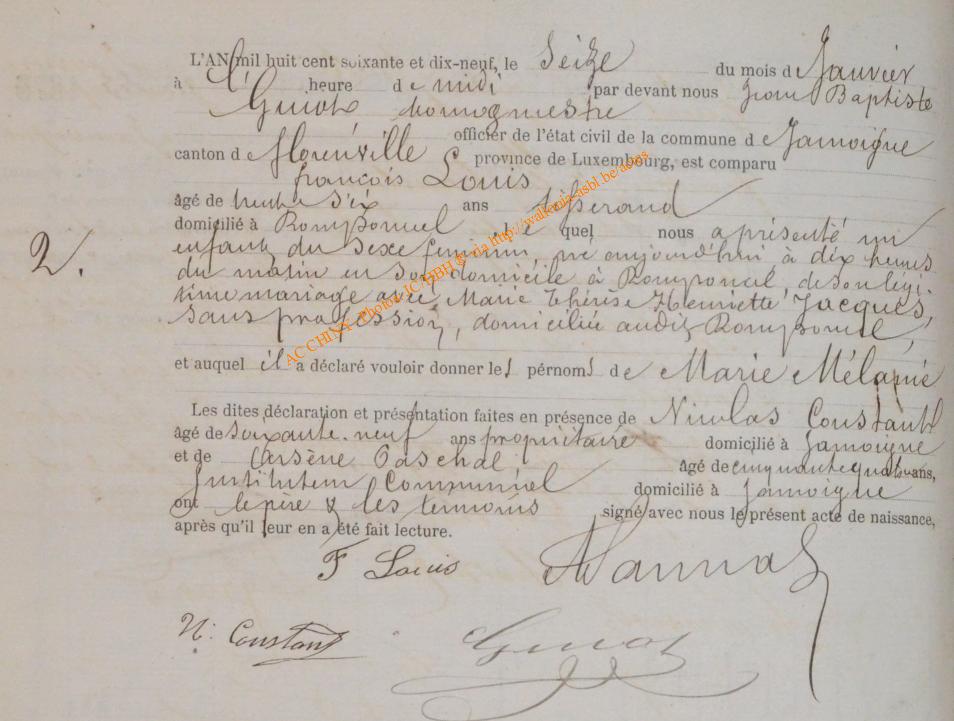 L'AN mil huit cent soixante et dix-neuf, le Seize du mois de Janvier
à heure de midi par devant nous Jean Baptiste
Guiot bourgmestre
officier de l'état civil de la commune de Jamoigne
canton de florenville province de Luxembourg, est comparu
françois Louis
âgé de trente Six ans tisserand
domicilié à Romponcel, le quel nous a présenté un
enfant du sexe feminin, né aujourd'hui à dix heures
du matin en son domicile à Romponcel, de son légi-
time mariage avec Marie thérèse Henriette Jacques,
sans profession, domiciliée audit Romponcel,
2.
et auquel il a déclaré vouloir donner les pérnoms de Marie Mélanie
Les dites déclaration et présentation faites en présence de Nicolas Constant
âgé de soixante-neuf ans propriétaire domicilié à Jamoigne
et de Arsène Paschal âgé de cinquante quatre ans,
Instituteur Communal domicilié à Jamoigne
ont le père & les témoins signé avec nous le présent acte de naissance,
après qu'il leur en a été fait lecture.
F Louis
N. Constant
Guiot
AC CHINY - Photos JC/HBH © via http://wallonia-asbl.be/actes